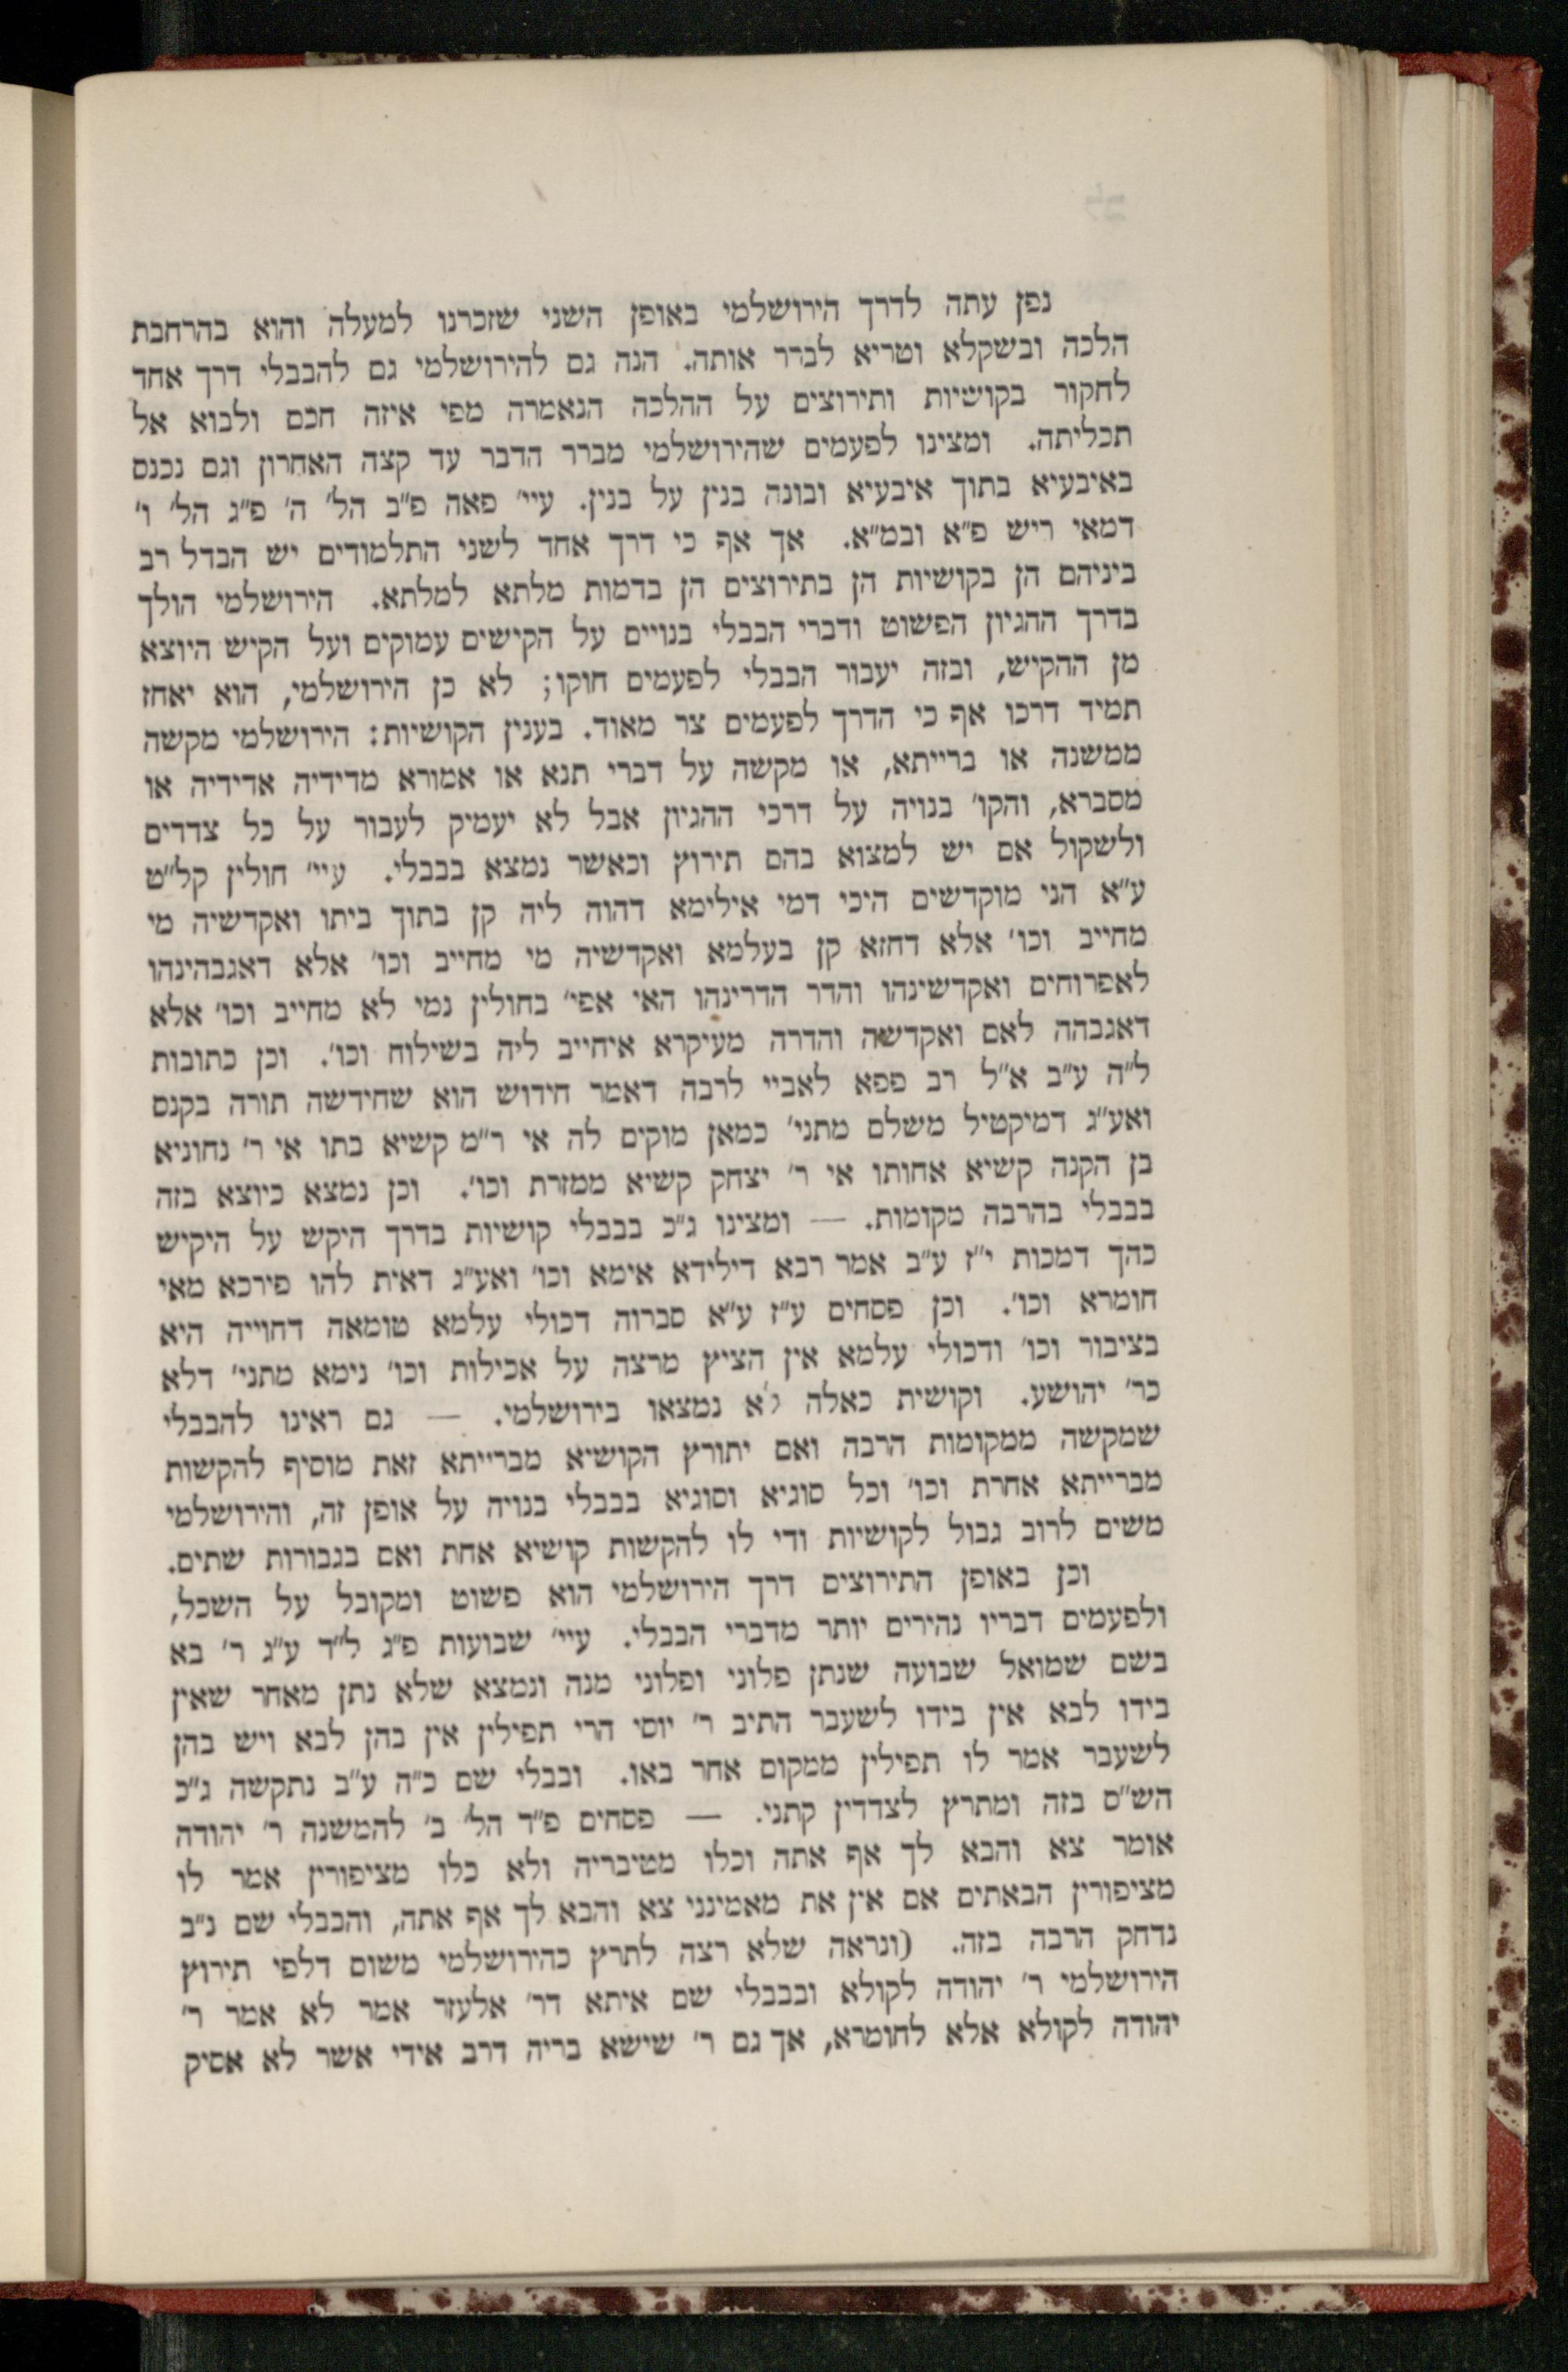 נפן עתה לדרך הירושלמי באופן השני שזכרנו למעלה והוא בהרחבת
הלכה ובשקלא וטריא לברר אותה. הנה גם להירושלמי גם להבבלי דרך אחד
לחקור בקושיות ותירוצים על ההלכה הנאמרה מפי איזה חכם ולבוא אל
תכליתה. ומצינו לפעמים שהירושלמי מברר הדבר עד קצה האחרון וגם נכנס
באיבעיא בתוך איבעיא ובונה בנין על בנין. עיי׳ פאה פ״ב הל׳ ה׳ פ״ג הל׳ ו׳
דמאי ריש פ״א ובמ״א. אך אף כי דרך אחד לשני התלמודים יש הבדל רב
ביניהם הן בקושיות הן בתירוצים הן בדמות מלתא למלתא. הירושלמי הולך
בדרך ההגיון הפשוט ודברי הבבלי בנויים על הקישים עמוקים ועל הקיש היוצא
מן ההקיש, ובזה יעבור הבבלי לפעמים חוקו; לא כן הירושלמי, הוא יאחז
תמיד דרכו אף כי הדרך לפעמים צר מאוד. בענין הקושיות: הירושלמי מקשה
ממשנה או ברייתא, או מקשה על דברי תנא או אמורא מדידיה אדידיה או
מסברא, והקו׳ בנויה על דרכי ההגיון אבל לא יעמיק לעבור על כל צדדים
ולשקול אם יש למצוא בהם תירוץ וכאשר נמצא בבבלי. עיי׳ חולין קל״ט
ע״א הני מוקדשים היכי דמי אילימא דהוה ליה קן בתוך ביתו ואקדשיה מי
מחייב וכו׳ אלא דחזא קן בעלמא ואקדשיה מי מחייב וכו׳ אלא דאגבהינהו
לאפרוחים ואקדשינהו והדר הדרינהו האי אפי׳ בחולין נמי לא מחייב וכו׳ אלא
דאגבהה לאם ואקדשה והדרה מעיקרא איחייב ליה בשילוח וכו׳. וכן כתובות
ל״ה ע״ב א״ל רב פפא לאביי לרבה דאמר חידוש הוא שחידשה תורה בקנס
ואע״ג דמיקטיל משלם מתני׳ כמאן מוקים לה אי ר״מ קשיא בתו אי ר׳ נחוניא
בן הקנה קשיא אחותו אי ר׳ יצחק קשיא ממזרת וכו׳. וכן נמצא כיוצא בזה
בבבלי בהרבה מקומות. — ומצינו ג״כ בבבלי קושיות בדרך היקש על היקיש
כהך דמכות י״ז ע״ב אמר רבא דילידא אימא וכו׳ ואע״ג דאית להו פירכא מאי
חומרא וכו׳. וכן פסחים ע״ז ע״א סברוה דכולי עלמא טומאה דחוייה היא
בציבור וכו׳ ודכולי עלמא אין הציץ מרצה על אכילות וכו׳ נימא מתני׳ דלא
כר׳ יהושע. וקושית כאלה לא נמצאו בירושלמי. — גם ראינו להבבלי
שמקשה ממקומות הרבה ואם יתורץ הקושיא מברייתא זאת מוסיף להקשות
מברייתא אחרת וכו׳ וכל סוגיא וסוגיא בבבלי בנויה על אופן זה, והירושלמי
משים לרוב גבול לקושיות ודי לו להקשות קושיא אחת ואם בגבורות שתים.
וכן באופן התירוצים דרך הירושלמי הוא פשוט ומקובל על השכל,
ולפעמים דבריו נהירים יותר מדברי הבבלי. עיי׳ שבועות פ״ג ל״ד ע״ג ר׳ בא
בשם שמואל שבועה שנתן פלוני ופלוני מנה ונמצא שלא נתן מאחר שאין
בידו לבא אין בידו לשעבר התיב ר׳ יוסי הרי תפילין אין בהן לבא ויש בהן
לשעבר אמר לו תפילין ממקום אחר באו. ובבלי שם כ״ה ע״ב נתקשה ג״כ
הש״ס בזה ומתרץ לצדדין קתני. — פסחים פ״ד הל׳ ב׳ להמשנה ר׳ יהודה
אומר צא והבא לך אף אתה וכלו מטיבריה ולא כלו מציפורין אמר לו
מציפורין הבאתים אם אין את מאמינני צא והבא לך אף אתה, והבבלי שם נ״ב
נדחק הרבה בזה. (ונראה שלא רצה לתרץ כהירושלמי משום דלפי תירוץ
הירושלמי ר׳ יהודה לקולא ובבבלי שם איתא דר׳ אלעזר אמר לא אמר ר׳
יהודה לקולא אלא לחומרא, אך גם ר׳ שישא בריה דרב אידי אשר לא אסיק